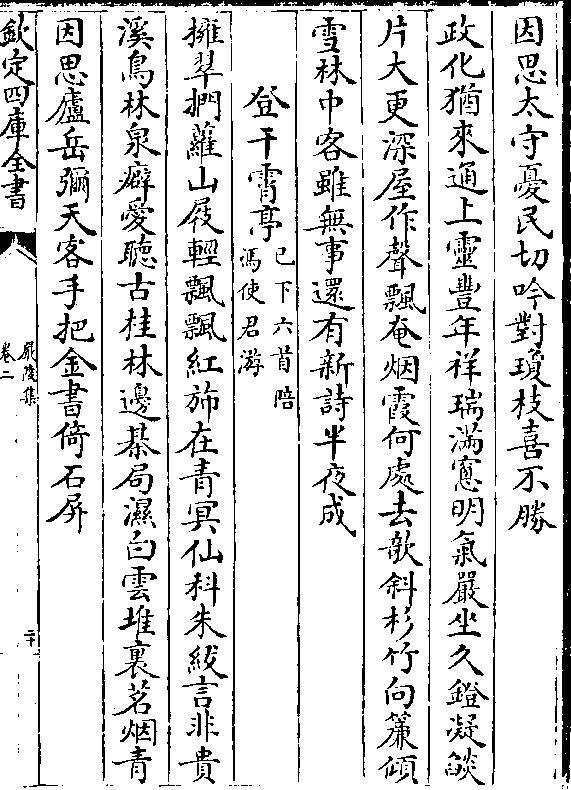 因思太守憂民切吟對瓊枝喜不勝
政化猶來通上靈豐年祥瑞滿窻明氣嚴坐久鐙凝燄
片大更深屋作聲飄奄烟霞何處去欹斜杉竹向簾傾
雪林中客雖無事還有新詩半夜成
登干霄亭已下六首陪
馮使君遊
擁翠捫蘿山屐輕飄飄紅斾在青冥仙科朱紱言非貴
溪鳥林泉癖愛聽古桂林邊棊局濕白雲堆裏茗烟青
因思廬岳彌天客手把金書倚石屏
欽定四庫全書
卷二
二十